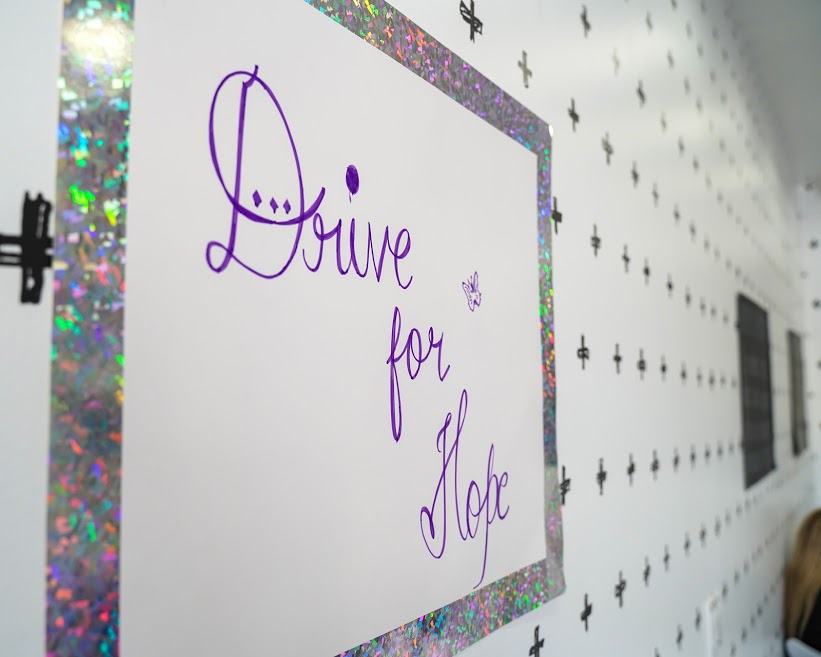 Drive
for
Hope